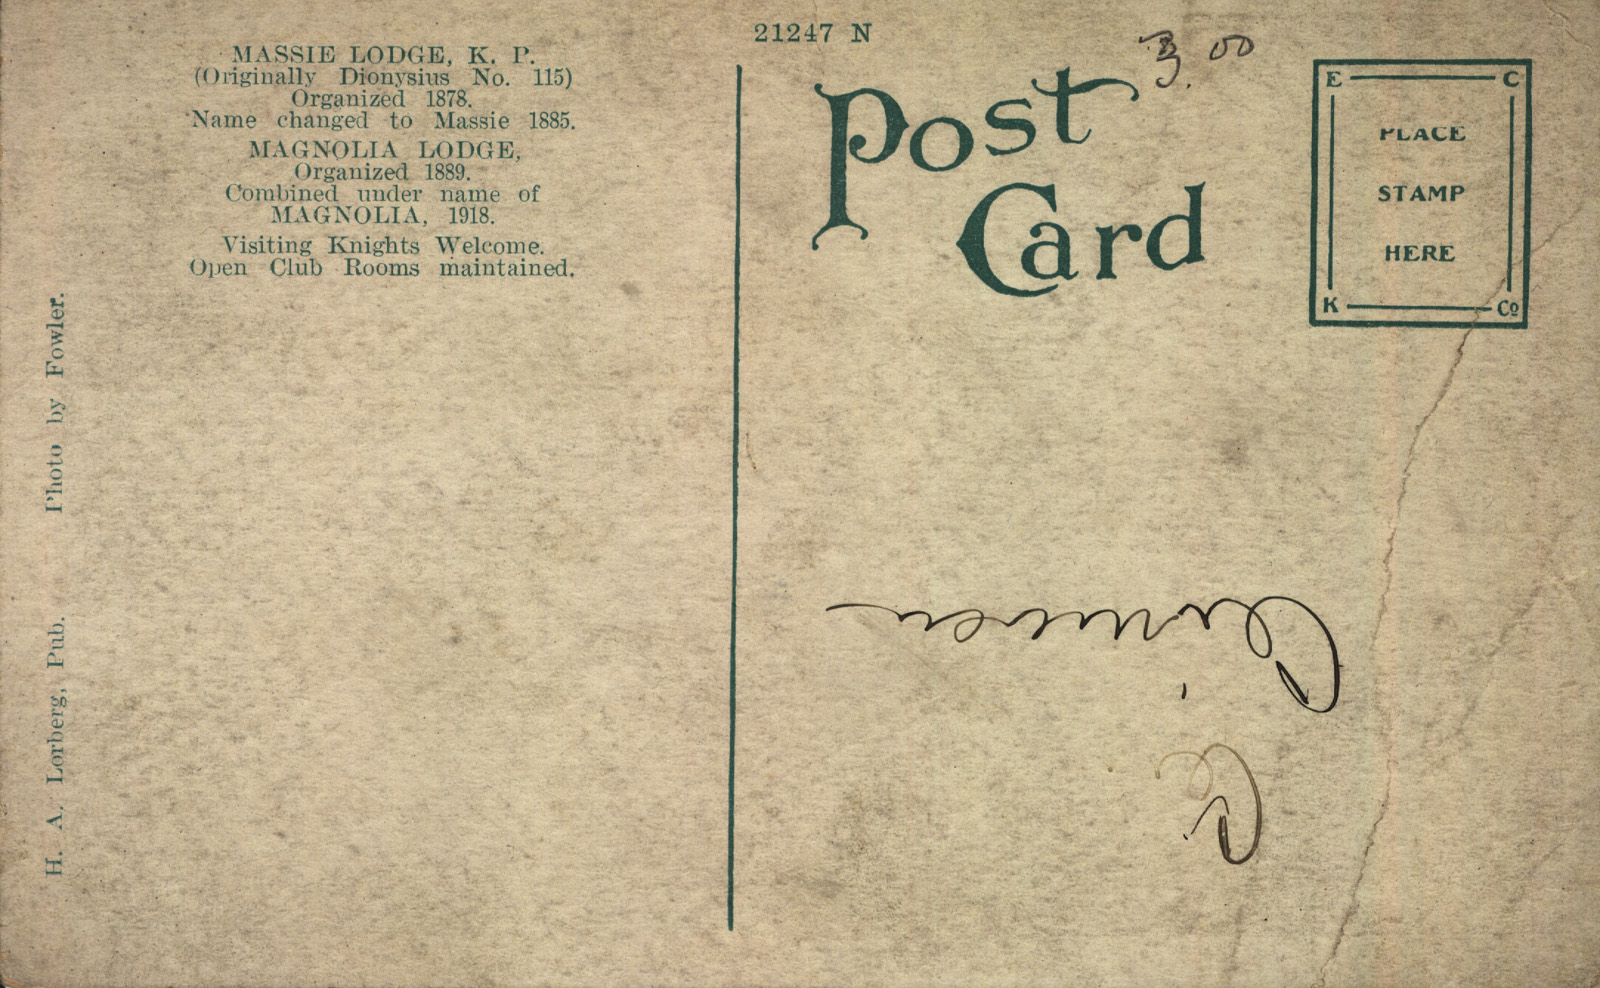 21247 N
MASSIE LODGE, K. P.
(Originally Dionysius No. 115)
Organized 1878.
Name changed to Massie 1885.
MAGNOLIA LODGE,
Organized 1889.
Combined under name of
MAGNOLIA, 1918.
Visiting Knights Welcome.
Open Club Rooms maintained.
H. A. Lorberg, Pub. Photo by Fowler.
3.00
Post
Card
E C
PLACE
STAMP
HERE
K Co